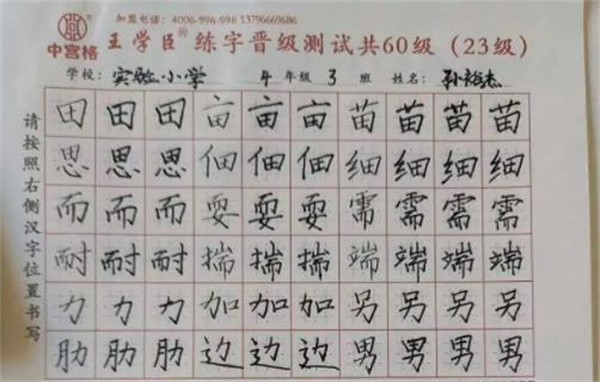 加盟电话:4006-996-996 13796669686
中宫格
王学臣®练字晋级测试共60级(23级)
学校: 实验小学 4 年级 3 班 姓名: 孙裕杰
请按照右侧汉字位置书写
田田田亩亩亩苗苗苗苗
思思思佃佃佃细细细细
而而而耍耍耍需需需需
耐耐耐揣揣揣端端端端
力力力加加加另另另另
肋肋肋边边边男男男男